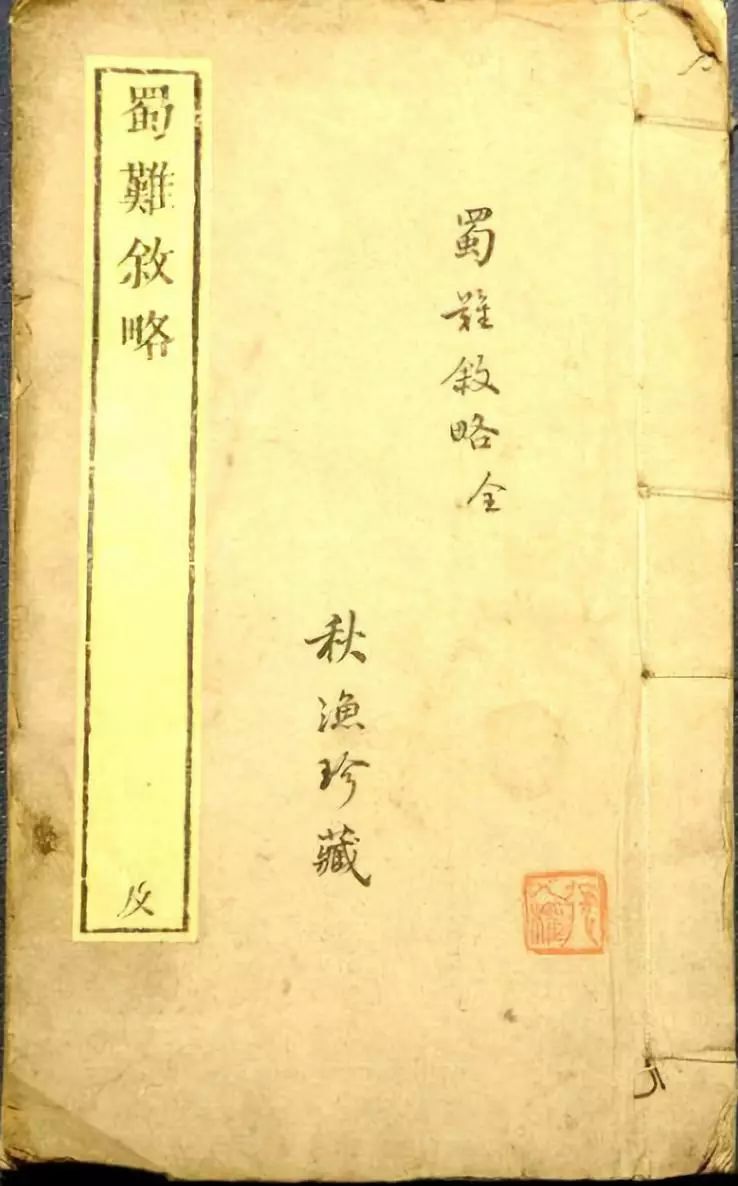 蜀難敘略全
秋漁珍藏
蜀難敘略